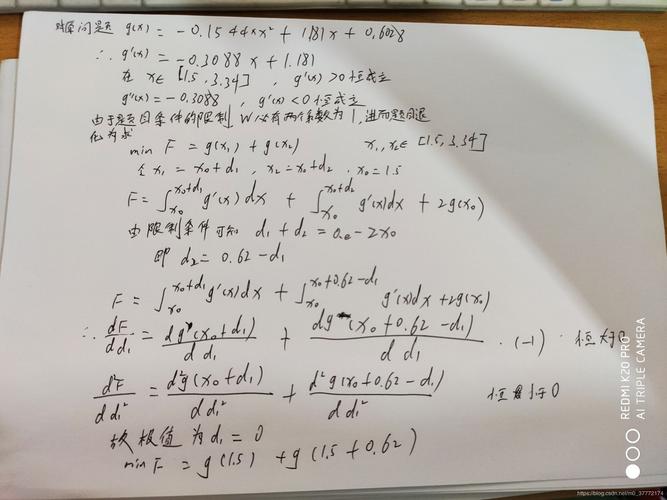 对原问题 g(x) = -0.1544*x² + 1.181x + 0.6028
∴ g'(x) = -0.3088x + 1.181
在 x∈ [1.5, 3.34] , g'(x) > 0 恒成立
g''(x) = -0.3088 , g''(x) < 0 恒成立
由于题目条件的限制, W必有两个系数为1, 进而题目退
化为求
min F = g(x₁) + g(x₂) x₁, x₂∈ [1.5, 3.34]
令 x₁ = x₀+d₁ , x₂ = x₀+d₂ , x₀ = 1.5
F = ∫_{x₀}^{x₀+d₁} g'(x)dx + ∫_{x₀}^{x₀+d₂} g'(x)dx + 2g(x₀)
由限制条件可知 d₁ + d₂ = a_e - 2x₀
即 d₂ = 0.62 - d₁
F = ∫_{x₀}^{x₀+d₁} g'(x)dx + ∫_{x₀}^{x₀+0.62-d₁} g'(x)dx + 2g(x₀)
∴ dF/dd₁ = dg(x₀+d₁)/dd₁ + dg(x₀+0.62-d₁)/dd₁ · (-1) 恒大于0
d²F/dd₁² = d²g(x₀+d₁)/dd₁² + d²g(x₀+0.62-d₁)/dd₁² 于0
故极值为 d₁ = 0
min F = g(1.5) + g(1.5+0.62)
REDMI K20 PRO
AI TRIPLE CAMERA
https://blog.csdn.net/m0_37772174